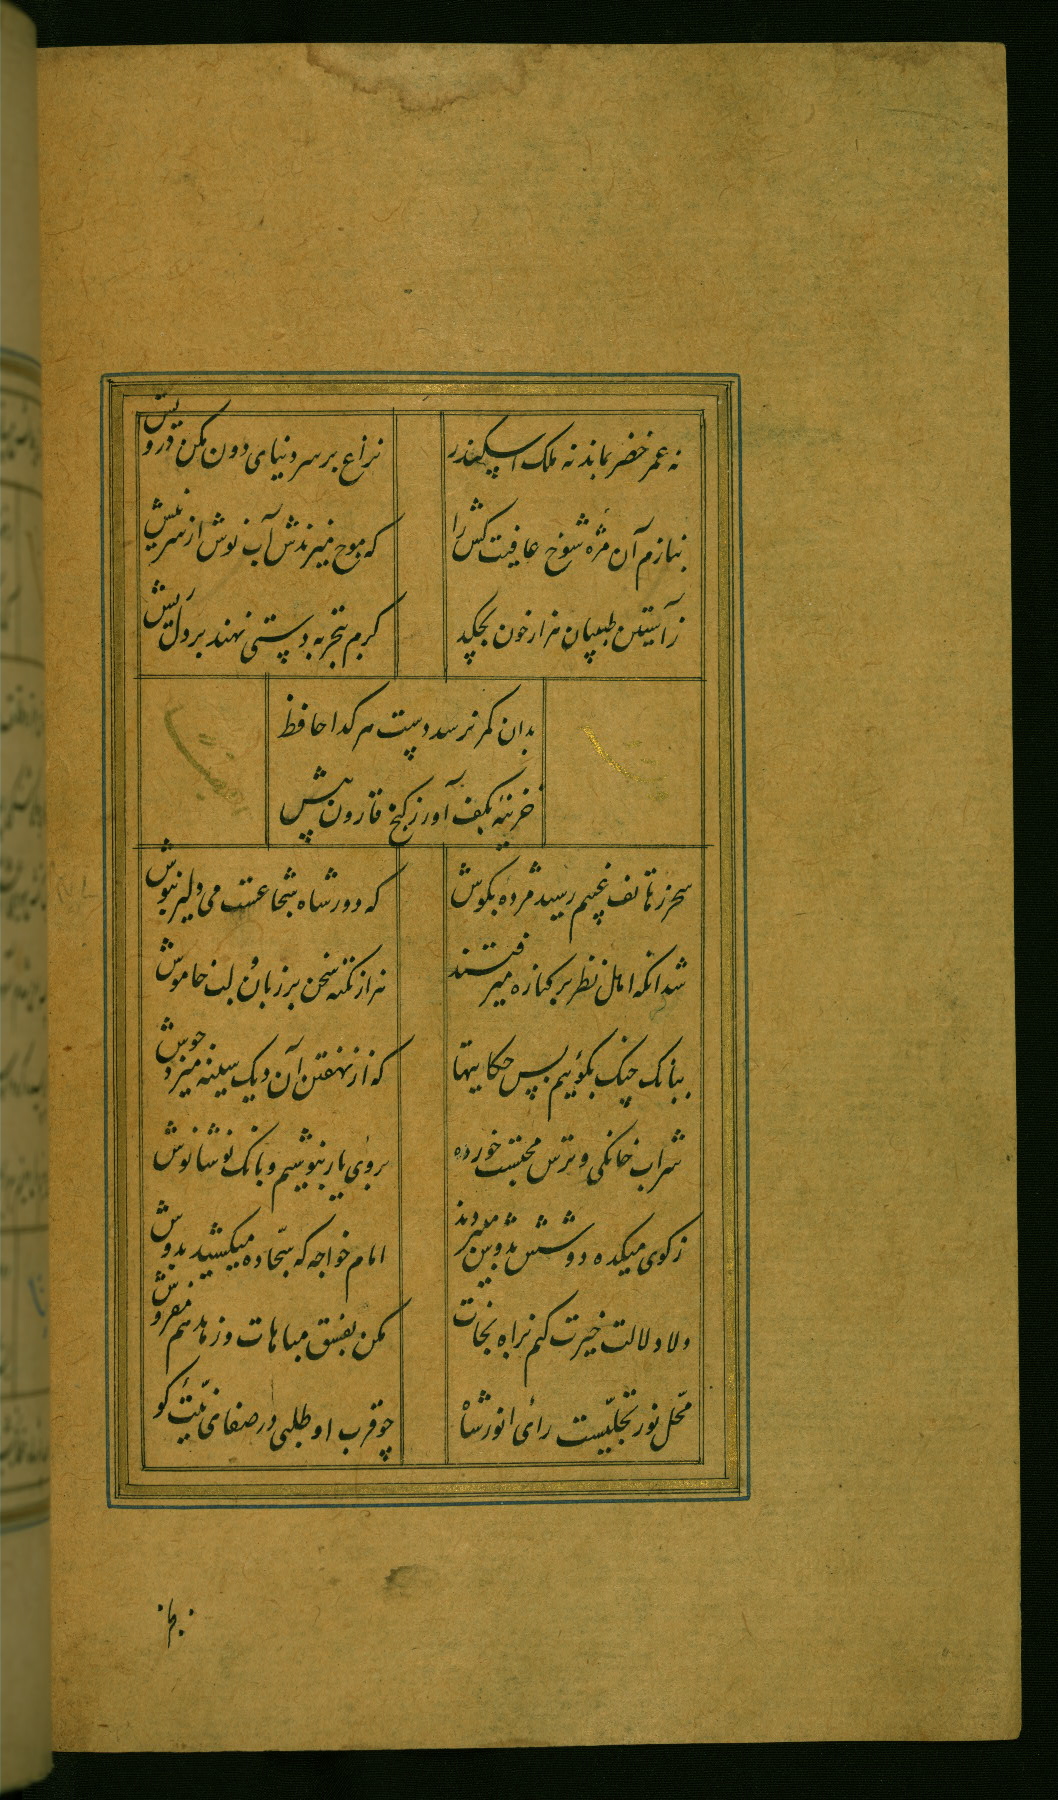 نه عمر خضر بماند نه ملک اسکندر نزاع بر سر دنیای دون مکن درویش
بنازم آن مژه شوخ عافیت کش را که موج میزندش آب نوش از سر نیش
ز آستین طبیبان هزار خون بچکد کرم بتجربه دستی نهند بر دل ریش
بدان کمر نرسد دست هر کدا حافظ
خزینهٔ بکف آور ز کنج قارون پیش
سحر ز هاتف غیبم رسید مژده بکوش که دور شاه شجاعست می دلیر بنوش
شد انکه اهل نظر بر کناره میرفتند هزار نکته سخن بر زبان و لب خاموش
ببانک چنک بکوئیم بس حکایتها که از نهفتن آن دیک سینه میزد جوش
شراب خانکی و ترس محتسب خورده بروی یار بنوشیم و بانک نوشانوش
ز کوی میکده دوشش بدوش میبردند امام خواجه که سجّاده میکشید بدوش
دلا دلالت خیرت کنم براه نجات مکن بفسق مباهات و زهد هم مفروش
محّل نور تجلّیست رأی انور شاه چو قرب او طلبی در صفای نیّت کو